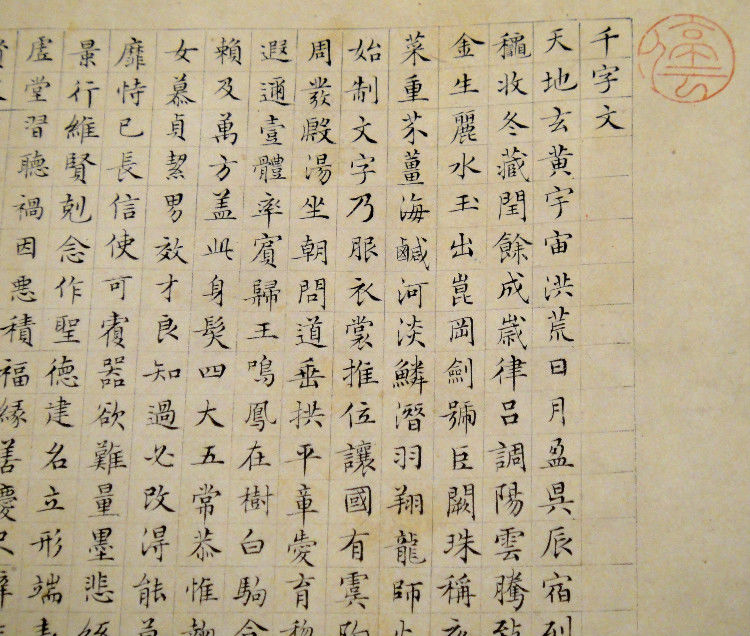 千字文
天地玄黃宇宙洪荒日月盈昃辰宿列
穐收冬藏閏餘成歲律呂調陽雲騰致
金生麗水玉出崑岡劍號巨闕珠稱夜
菜重芥薑海鹹河淡鱗潛羽翔龍師火
始制文字乃服衣裳推位讓國有虞陶
周發殷湯坐朝問道垂拱平章愛育黎
遐邇壹體率賓歸王鳴鳳在樹白駒食
賴及萬方盖此身髮四大五常恭惟鞠
女慕貞絜男效才良知過必改得能莫
靡恃己長信使可覆器欲難量墨悲絲
景行維賢剋念作聖德建名立形端表
虛堂習聽禍因惡積福緣善慶尺璧